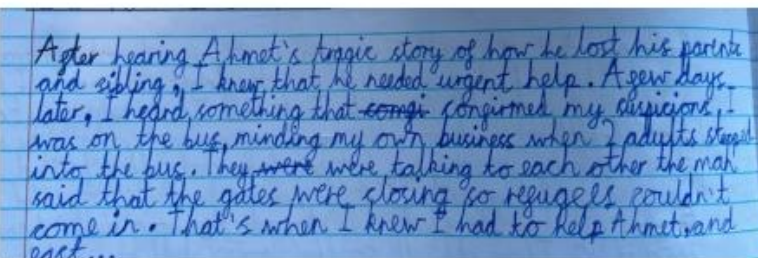 After hearing Ahmet's tragic story of how he lost his parents
and sibling, I knew that he needed urgent help. A few days
later, I heard something that comfi confirmed my suspicions, I
was on the bus, minding my own business when 2 adults stepped
into the bus. They were were talking to each other the man
said that the gates were closing so refugees couldn't
come in. That's when I knew I had to help Ahmet, and
fast...